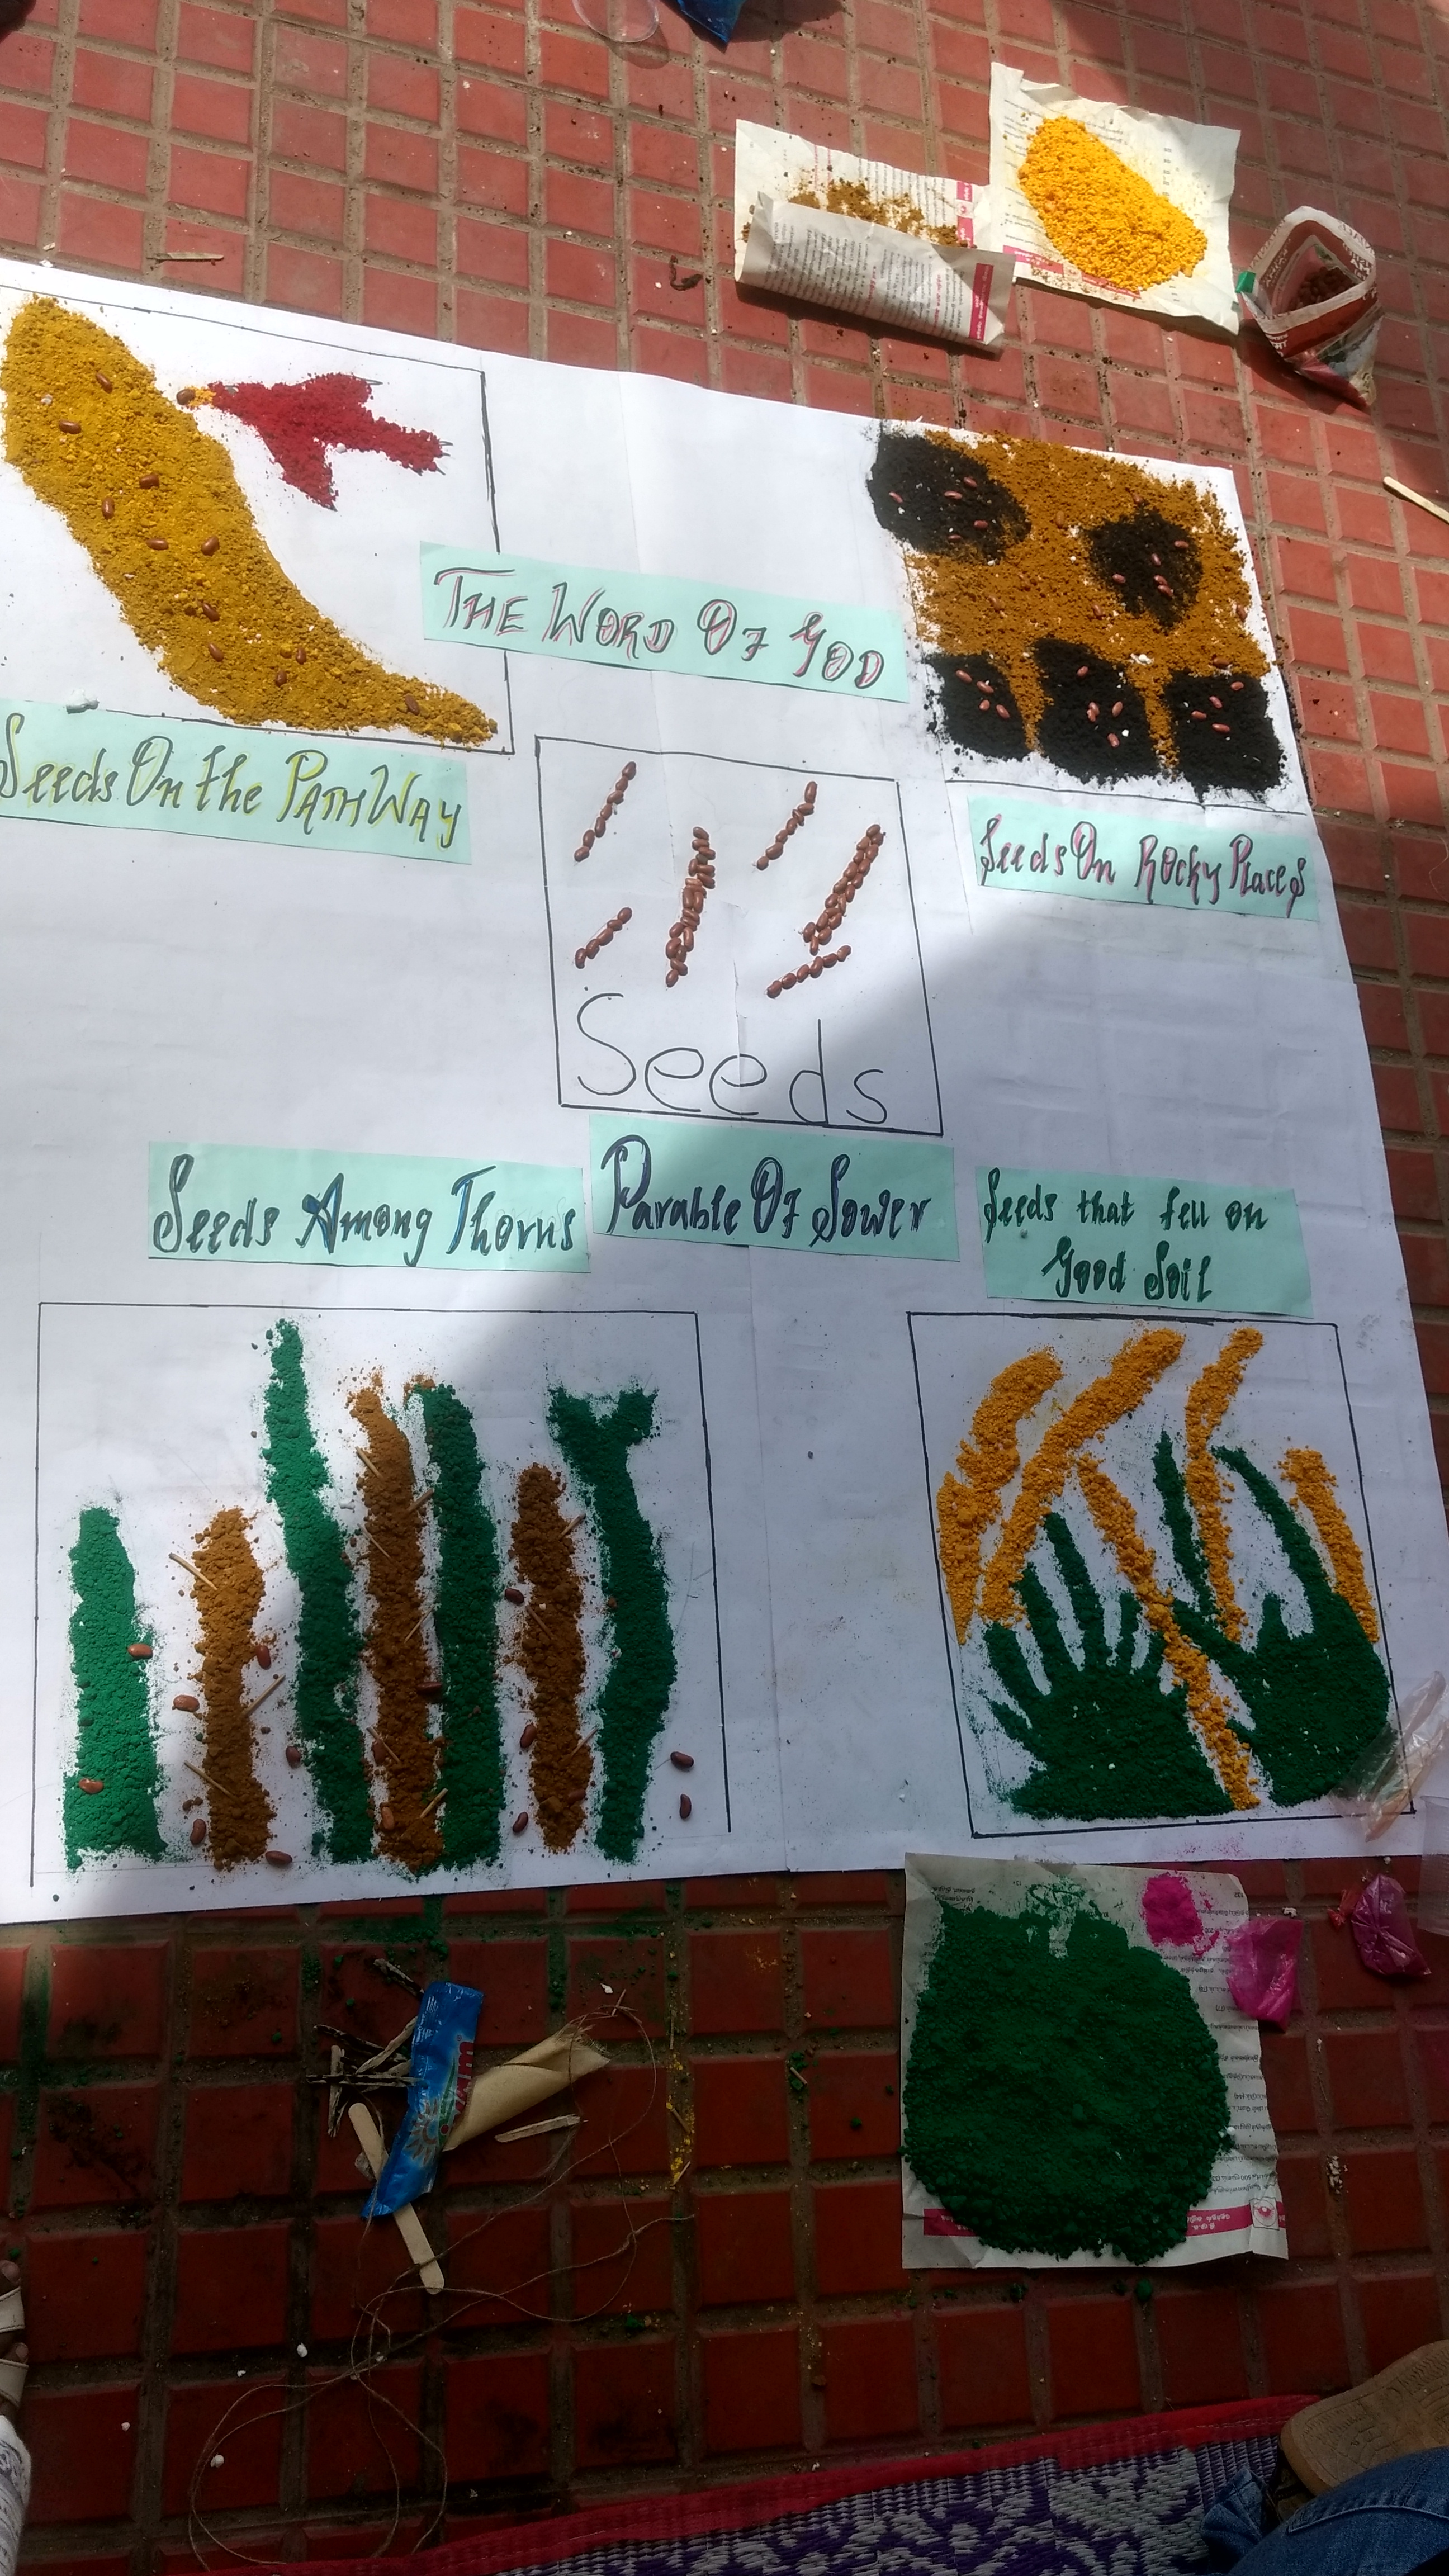 THE WORD OF GOD
Seeds On the PATHWAY
Seeds On Rocky Places
Seeds
Seeds Among Thorns
Parable Of Sower
Seeds that fell on
Good Soil